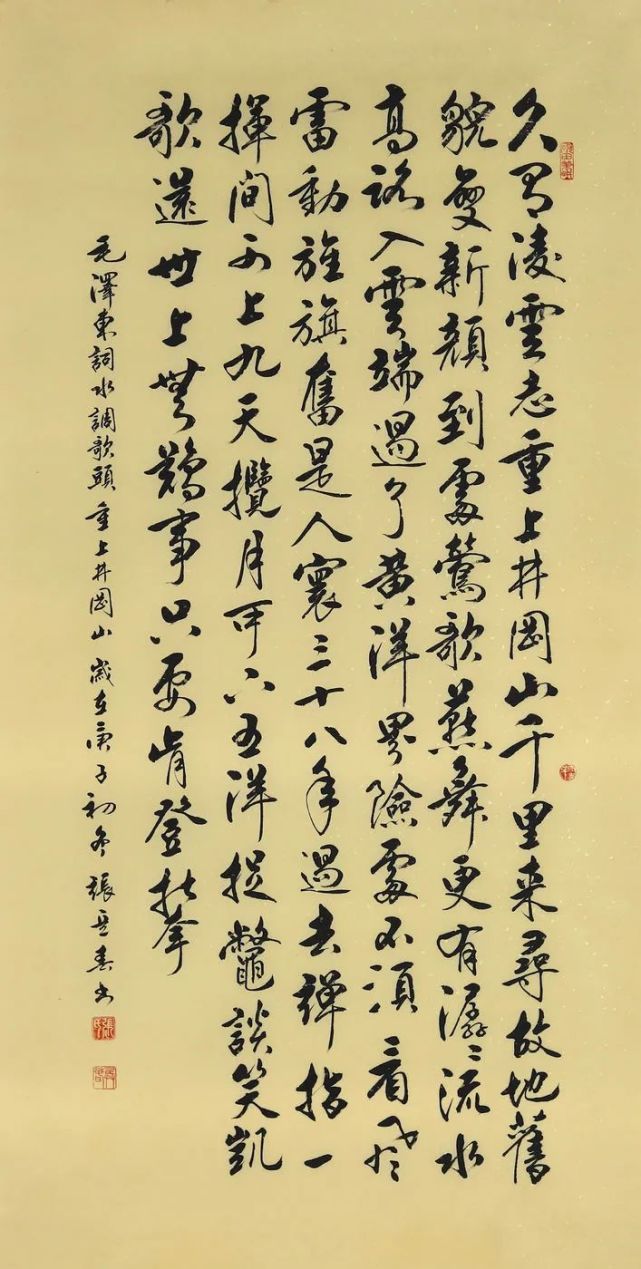 久有淩雲志重上井岡山千里来尋故地舊
貌變新顔到處鶯歌燕舞更有潺〻流水
高路入雲端過了黄洋界險處不須看風
雷動旌旗奮是人寰三十八年過去彈指一
揮間可上九天攬月可下五洋捉鼈談笑凱
歌還世上無難事只要肯登攀
毛澤東詞水調歌頭重上井岡山 歲在庚子初冬張春書